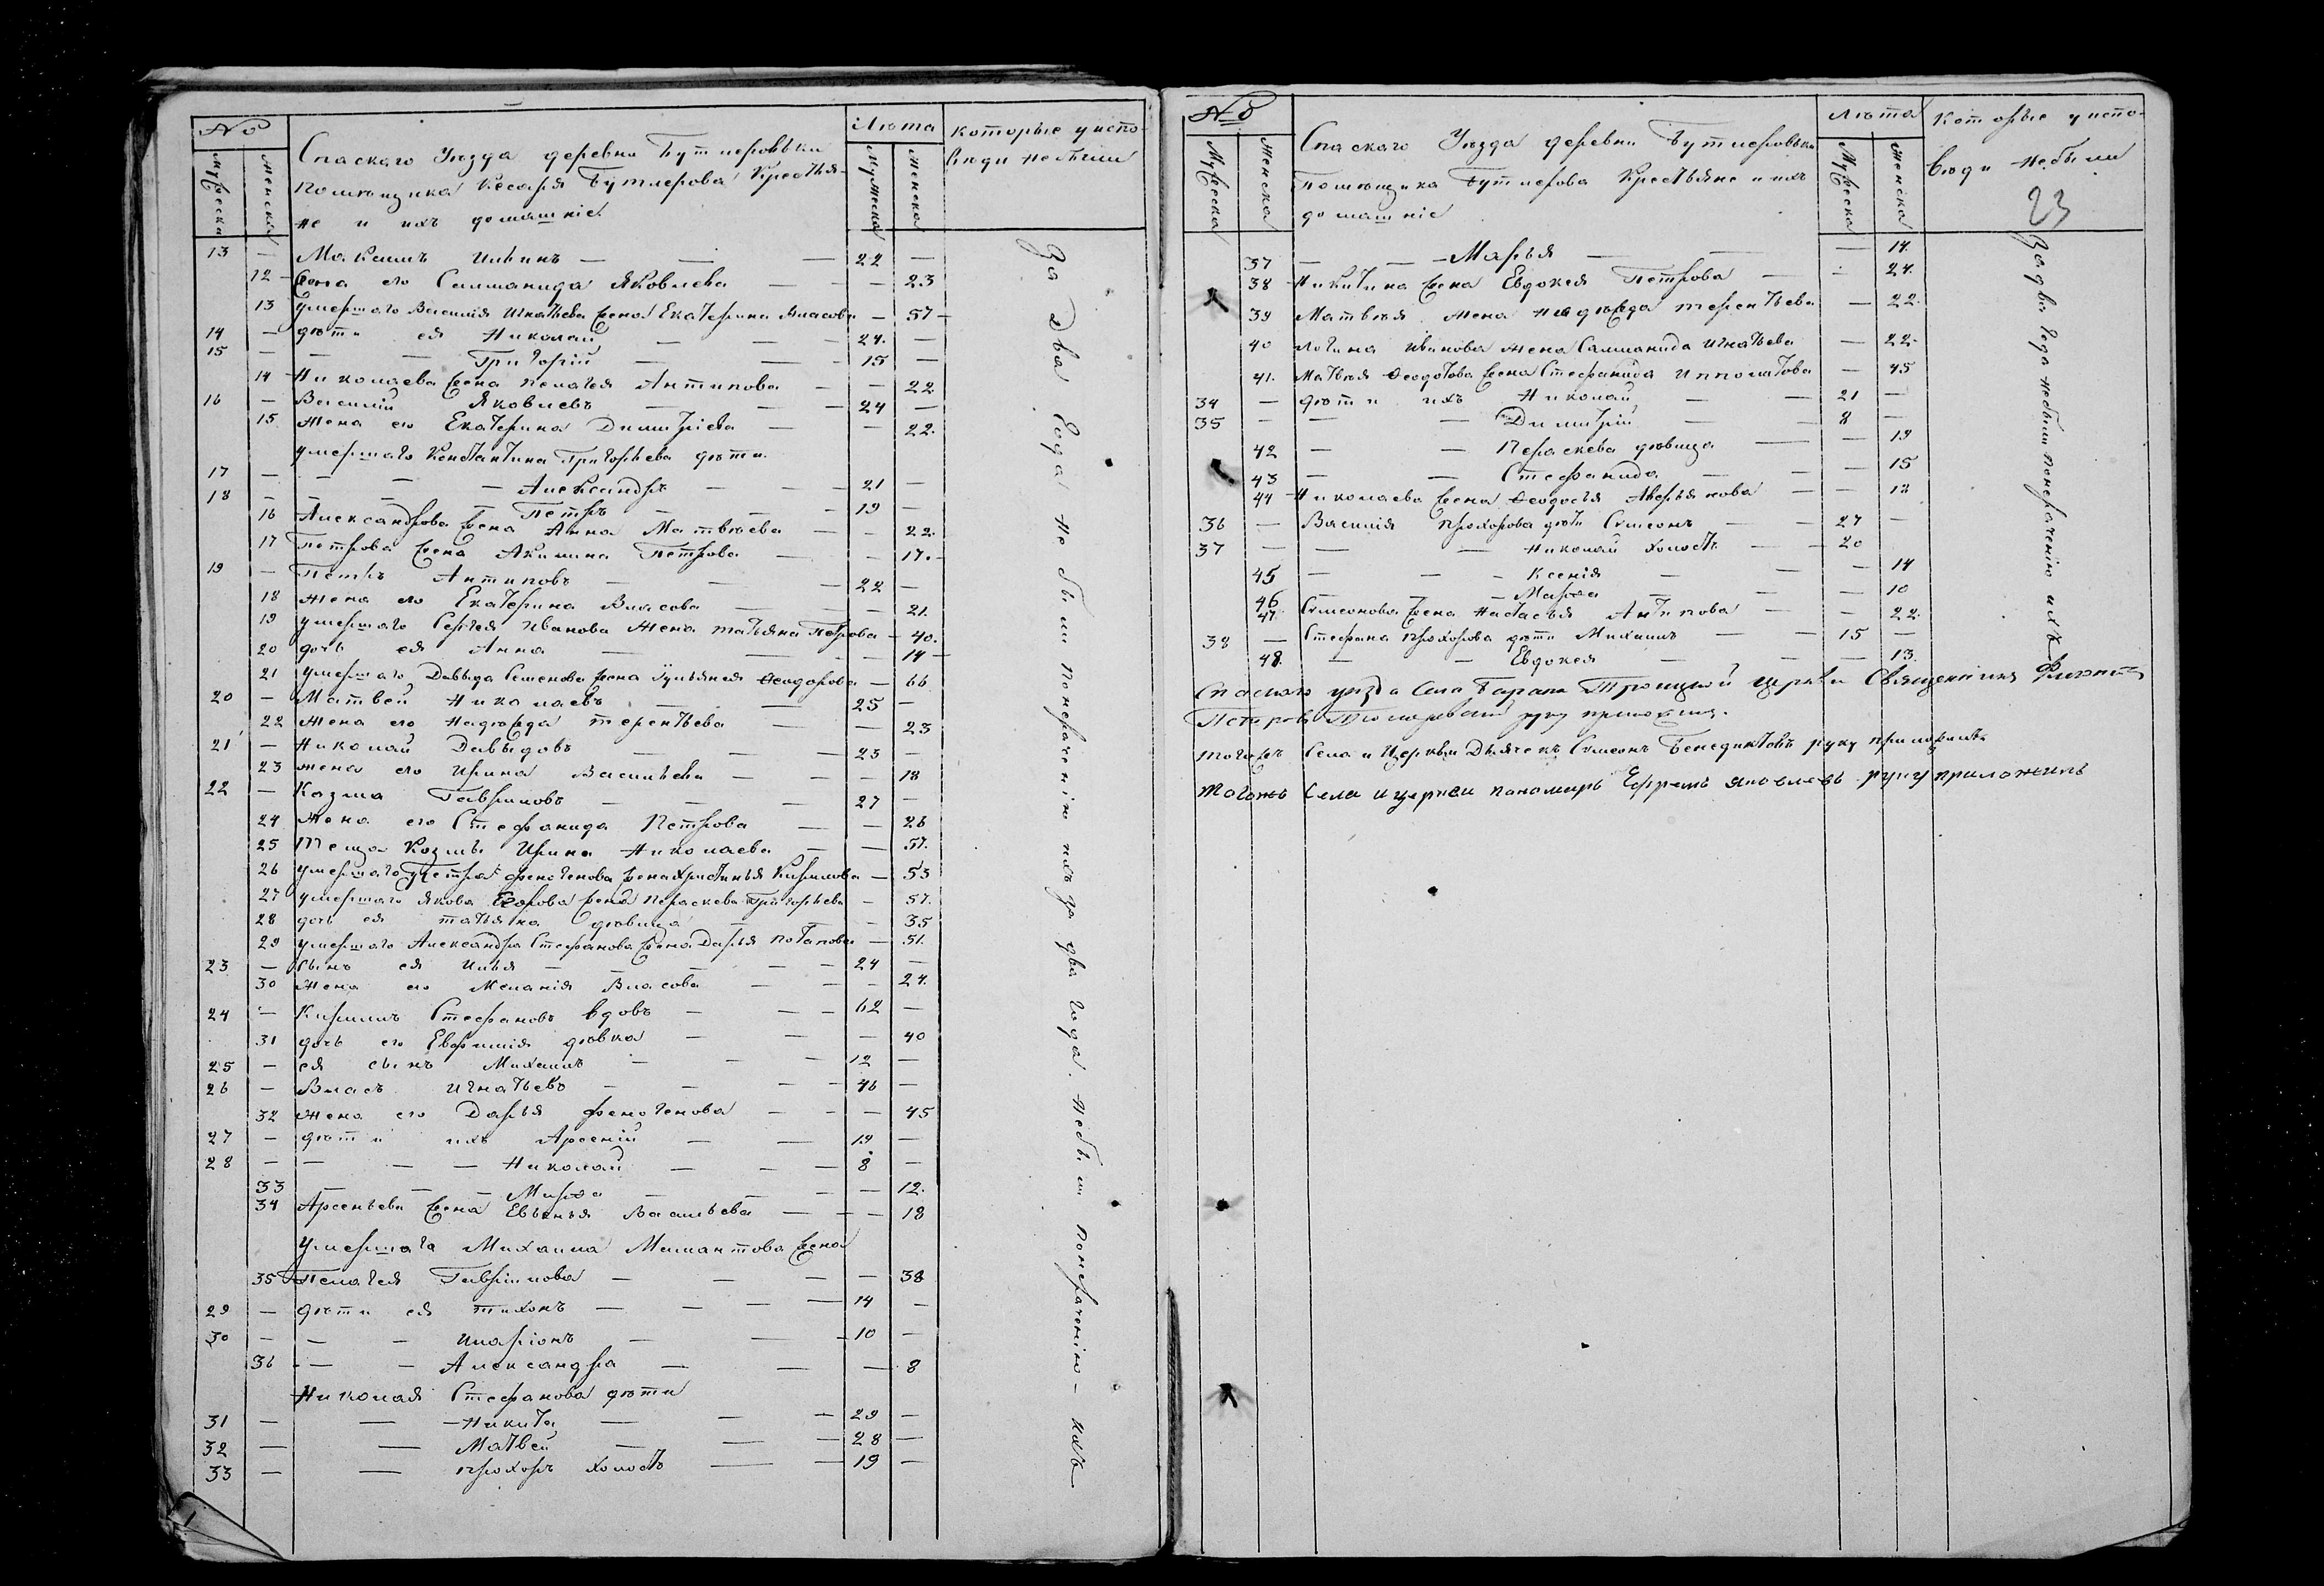 №
Мужеска
Женска
Спаскаго Уезда деревни Бутлеровки
помѣщика Кесаря Бутлерова Крестья-
не и ихъ домашніе.
Лѣта
Мужеска
Женска
которые у испо-
веди небыли
13 — Максимъ Ильинъ — — — 22 —
12 — Жена его Саламанида Яковлева — — — 23
13 умершаго Василія Игнатьева жена Екатерина Власова — 57 —
14 — дѣти ея Николай — — — 24. —
15 — — — Григорій — — 15 —
14 Николаева жена Пелагея Антипова — — 22
16 — Василий Яковлевъ — — — 24 —
15 Жена его Екатерина Димитріева — — 22.
умершаго Константина Григорьева дѣти.
17 — — — — Александръ — — — 21 —
18 — — — — Петръ — — — 19 —
16 Александрова жена Анна Матвѣева — — 22.
17 Петрова жена Акилина Петрова — — 17. —
19 — Петръ Антиповъ — — — 22 —
18 жена его Екатерина Власова — — — 21.
19 умершаго Сергея Иванова жена Татьяна Петрова — 40.
20 дочь ея Анна — — — 14 —
21 умершаго Давыда Семенова жена Ѳеодорова — 66
20 — Матвей Николаевъ — — — 25 —
22 Жена его Надежда Терентьева — — 23
21 — Николай Давыдовъ — — — 23 —
23 жена его Ирина Васильева — — — 18
22 — Козма Гавриловъ — — — 27 —
24 Жена его Стефанида Петрова — — 26
25 Теща Козмы Ирина Николаева — — 57.
26 умершаго Петра Феногенова жена Христинья Кирилова — 53
27 умершаго Якова Егорова жена Пераскева Григорьева — 57.
28 дочь ея татьяна дѣвица — — 35
29 умершаго Александра Стефанова жена Дарья Потапова — 51.
23 — сынъ ея Илья — — — — — 24 —
30 Жена его Меланія Власова — — — 24.
24 — Кирилъ Стефановъ вдовъ — — — 62 —
31 дочь его Евфимія дѣвка — — — 40
25 — ея сынъ Михаилъ — — — 12 —
26 — Власъ Игнатьевъ — — — 46 —
32 Жена его Дарья Феногенова — — — 45
27 — дѣти ихъ Арсеній — — 19 —
28 — — — — Николай — — — 8 —
33 — — — Марѳа — — — — 12.
34 Арсеньева жена Евгенья Васильева — — — 18
умершаго Михаила жена
35 Пелагея Гаврилова — — — — 38
29 — дѣти ея тихонъ — — — — 14 —
30 — — — Иларіонъ — — 10 —
36 — — — Александра — — — 8
Николая Стефанова дѣти
31 — — — Никита — — — 29 —
32 — — Матвей — — — 28 —
33 — — прохоръ холостъ — — 19 —
За два года не были понераченію ихъ за два года. небыли понераченію — ихъ
№
Мужеска
Женска
Спаскаго Уѣзда деревни Бутлеровки
помѣщика Бутлерова Крестьяне и ихъ
домашніе
Лѣта
Мужеска
Женска
которые у испо-
веди небыли
23
37 — — — Марья — — — 14.
38 Никитина жена Евдокея Петрова — — 24.
39 Матвѣя жена надежда терентьева — 22.
40 Логина Иванова жена Саламанида Игнатьева — 22.
41. Матвея Ѳеодотова жена Стефанида Ипполатова — 45
34 — дѣти ихъ Николай — — 21 —
35 — — — Димитрій — — 8 —
42 — — Пераскева дѣвица — — 19
43 — — Стефанида — — — 15
44 Николаева жена Ѳеодосья Аверьянова — — 18
36 — Василія Прохорова дѣти Симеонъ — — 27 —
37 — — — Николай холостъ — — 20
45 — — — Ксенія — — — 14
46 — — — Марѳа — — — 10
47. Симеонова жена Настасья Антипова — — 22.
38 — Стефана Прохорова дѣти Михаилъ — — 15 —
48. — — Евдокея — — — 13.
За два года небыли понераченію ихъ
Спаскаго уезда Села Троицкой церкви Священникъ
Петровъ руку приложилъ.
тогожъ Села и Церкви Дьячекъ Симеонъ Бенедиктовъ руку приложилъ
Тогожъ Села и церкви пономарь Ефремъ Яковлевъ руку приложилъ